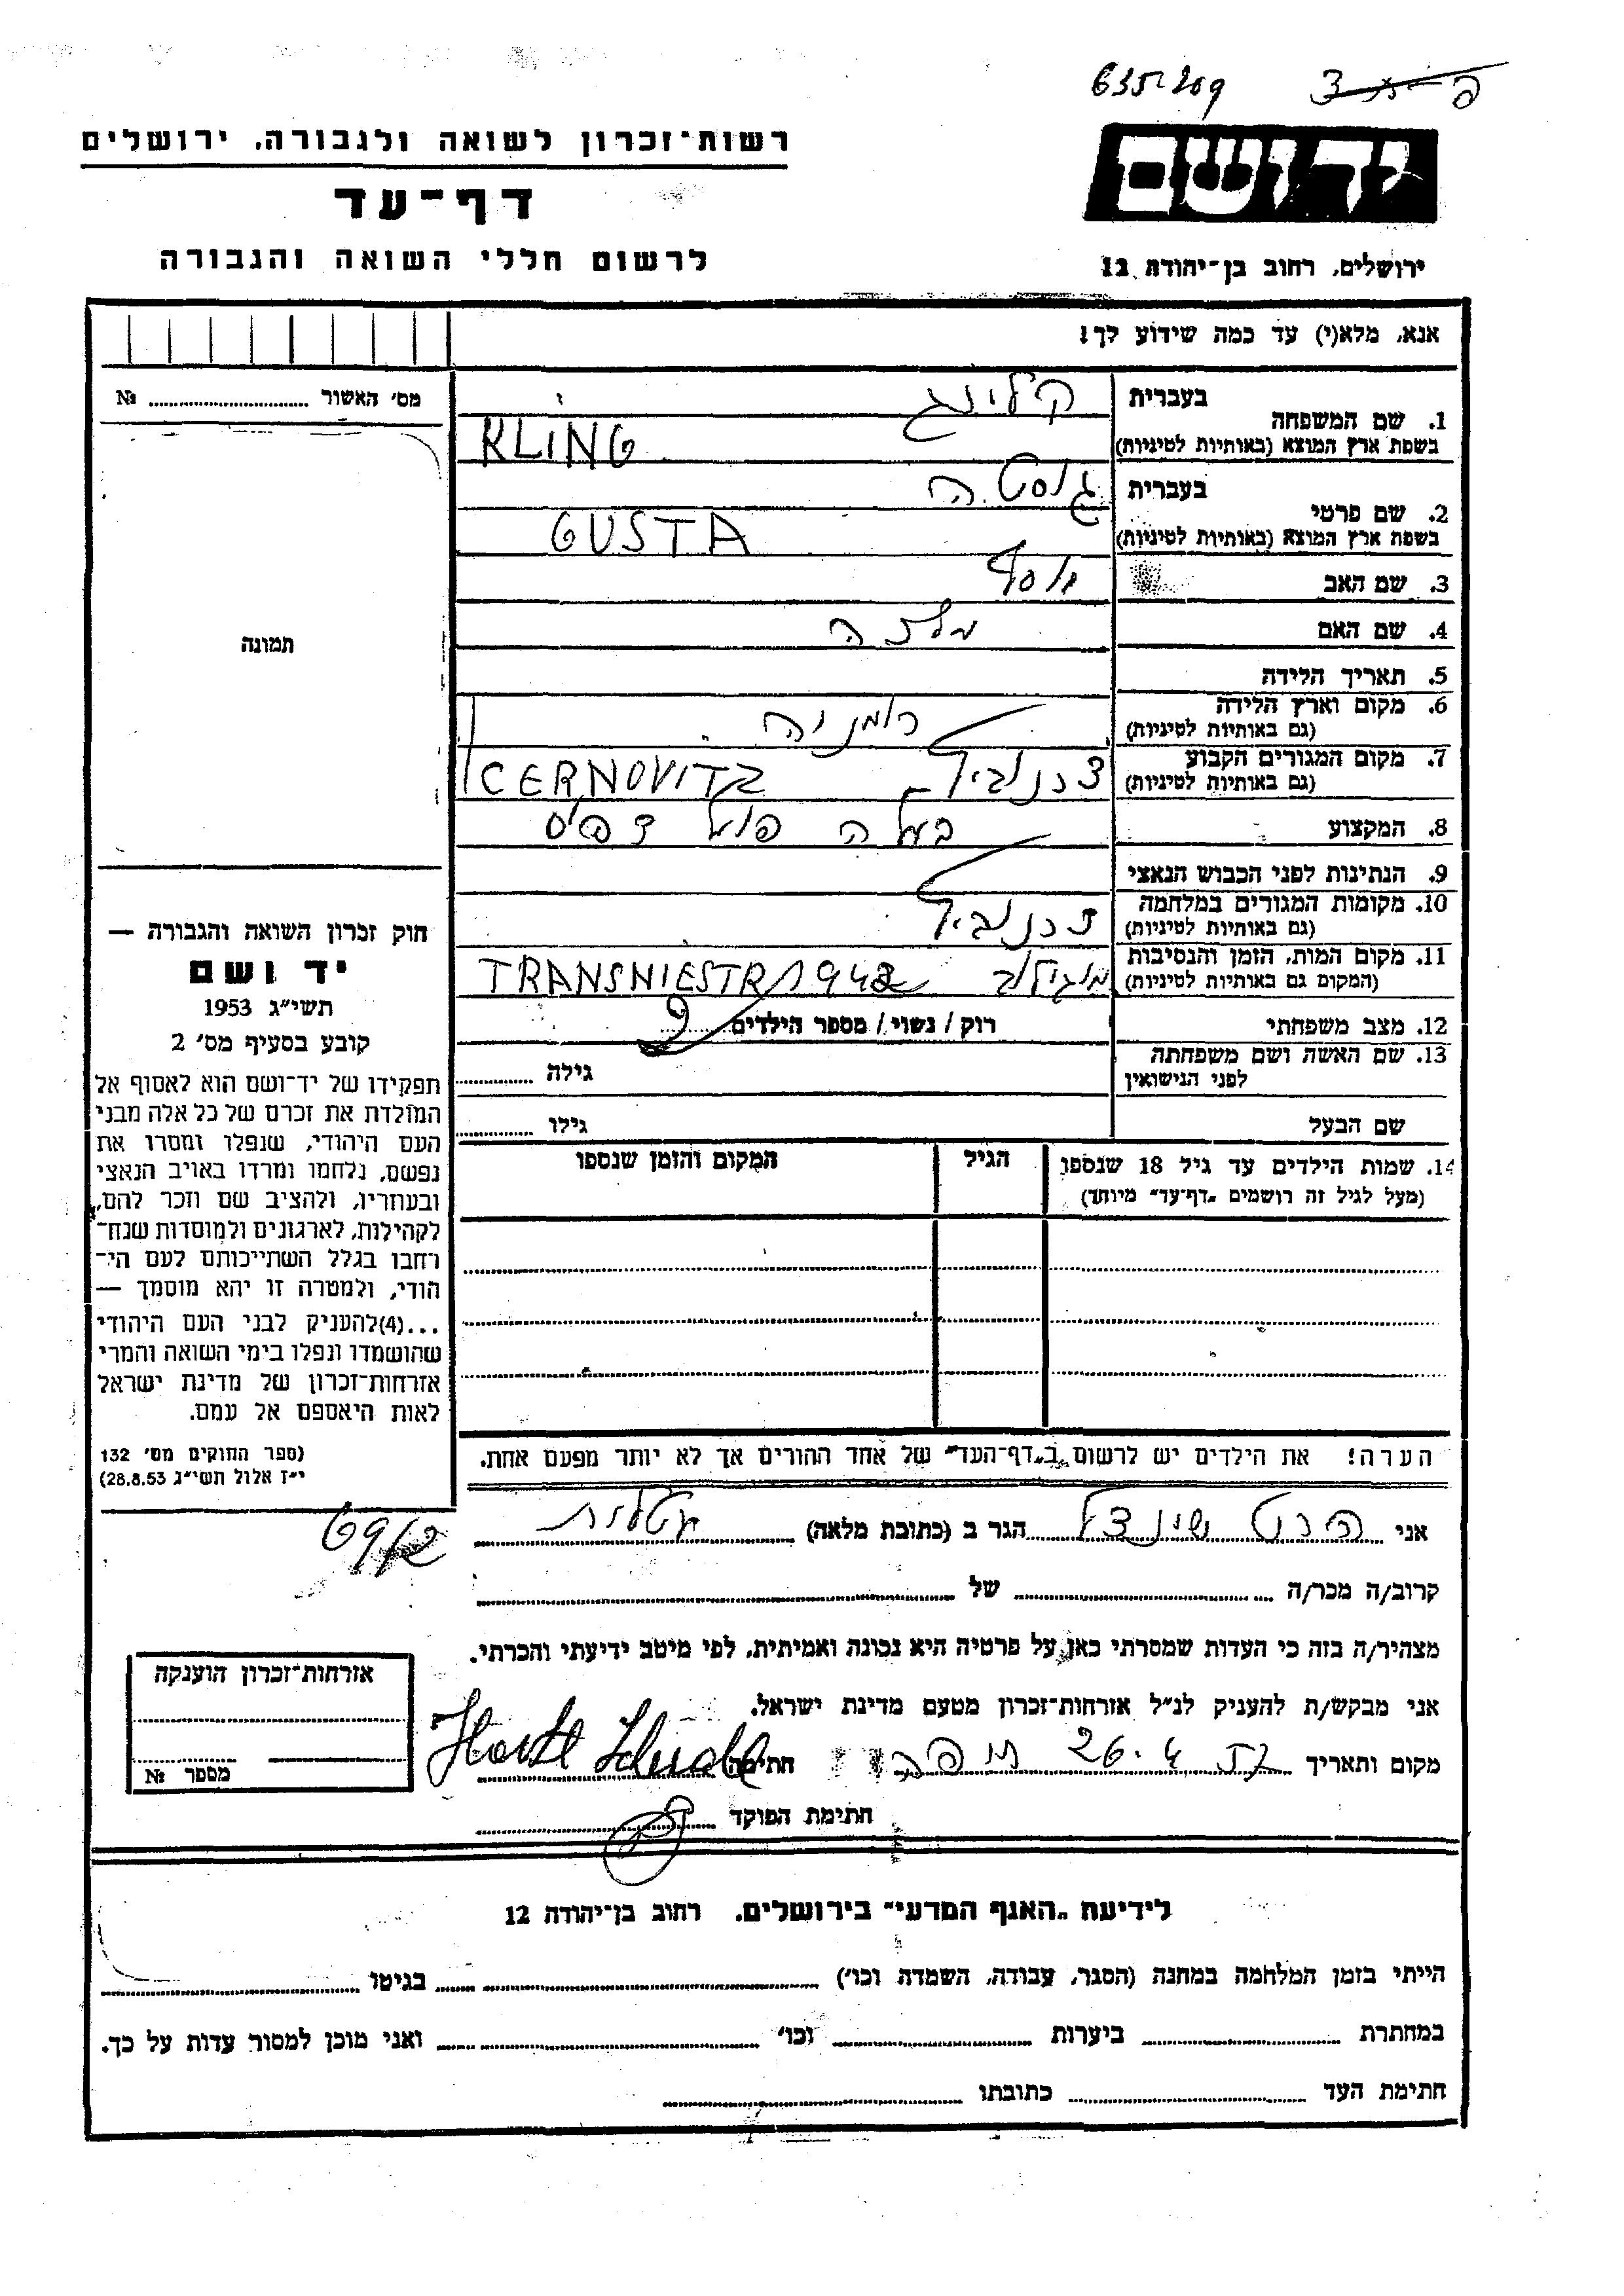 635-209
רשות-זכרון לשואה ולגבורה, ירושלים
יד ושם
דף-עד
לרשום חללי השואה והגבורה
ירושלים, רחוב בן-יהודה 12
אנא, מלא(י) עד כמה שידוע לך!
מס' האשור ........ №
1. שם המשפחה בעברית קלינג
בשפת ארץ המוצא (באותיות לטיניות) KLING
2. שם פרטי בעברית גוסטה
בשפת ארץ המוצא (באותיות לטיניות) GUSTA
3. שם האב יוסף
4. שם האם מלכה
תמונה
5. תאריך הלידה
6. מקום וארץ הלידה רומניה
(גם באותיות לטיניות)
7. מקום המגורים הקבוע צרנוביץ CERNOVITZ
(גם באותיות לטיניות)
8. המקצוע
9. הנתינות לפני הכבוש הנאצי
10. מקומות המגורים במלחמה צרנוביץ
(גם באותיות לטיניות)
11. מקום המות, הזמן והנסיבות מוגילוב TRANSNIESTR 1942
(המקום גם באותיות לטיניות)
12. מצב משפחתי רוק / נשוי / מספר הילדים
13. שם האשה ושם משפחתה גילה
לפני הנישואין
שם הבעל גילו
14. שמות הילדים עד גיל 18 שנספו הגיל המקום והזמן שנספו
(מעל לגיל זה רושמים „דף-עד" מיוחד)
חוק זכרון השואה והגבורה —
יד ושם
תשי"ג 1953
קובע בסעיף מס' 2
תפקידו של יד-ושם הוא לאסוף אל
המולדת את זכרם של כל אלה מבני
העם היהודי, שנפלו ומסרו את
נפשם, נלחמו ומרדו באויב הנאצי
ובעוזריו, ולהציב שם וזכר להם,
לקהילות, לארגונים ולמוסדות שנח-
רחבו בגלל השתייכותם לעם הי-
הודי, ולמטרה זו יהא מוסמך —
...(4)להעניק לבני העם היהודי
שהושמדו ונפלו בימי השואה והמרי
אזרחות-זכרון של מדינת ישראל
לאות היאספם אל עמם.
(ספר החוקים מס' 132
י"ז אלול תשי"ג 28.8.53)
הערה! את הילדים יש לרשום ב„דף-העד" של אחד ההורים אך לא יותר מפעם אחת.
69/2
אני הרט שינדל הגר ב (כתובת מלאה) עטלית
קרוב/ה מכר/ה ........ של ........
מצהיר/ה בזה כי העדות שמסרתי כאן על פרטיה היא נכונה ואמיתית, לפי מיטב ידיעתי והכרתי.
אני מבקש/ת להעניק לנ"ל אזרחות-זכרון מטעם מדינת ישראל.
מקום ותאריך חיפה 26.4.57 חתימה
חתימת הפוקד
אזרחות-זכרון הוענקה
מספר №
לידיעת „האגף המדעי" בירושלים. רחוב בן-יהודה 12
הייתי בזמן המלחמה במחנה (הסגר, עבודה, השמדה וכו') ........ בגיטו ........
במחתרת ........ ביערות ........ וכו' ........ ואני מוכן למסור עדות על כך.
חתימת העד ........ כתובתו ........